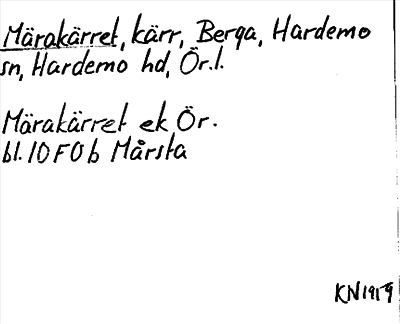 Märakärret, kärr, Berga, Hardemo
sn, Hardemo hd, Ör.l.
Märakärret ek Ör.
bl. 10F0b Mårsta
KN1919